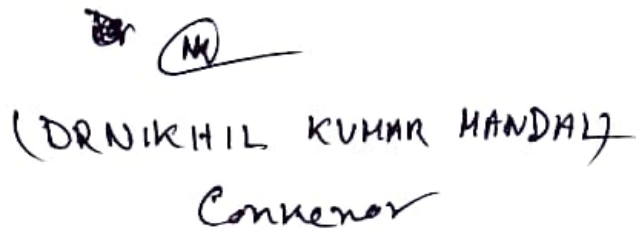 NK
(DR NIKHIL KUMAR MANDAL)
Convenor